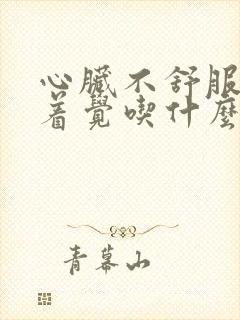 心臟不舒服
着覺喫什麼
青幕山